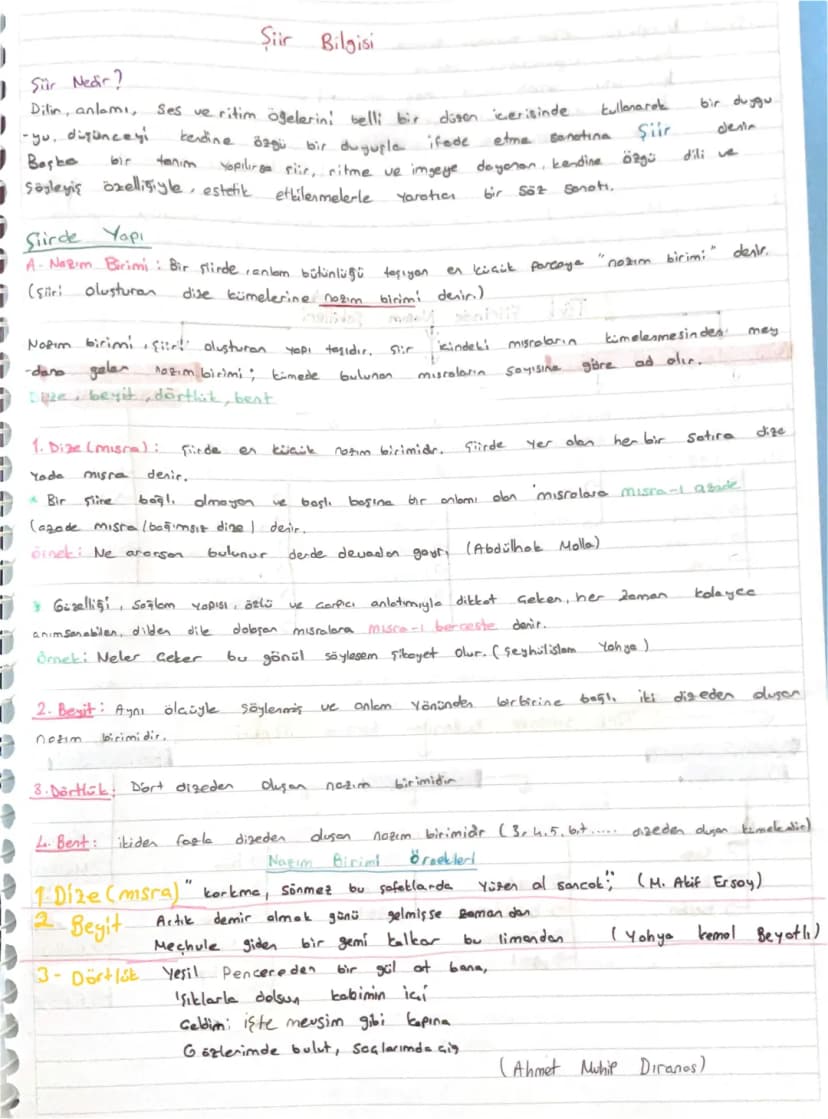 Şiir Bilgisi
Şiir Nedir?
Dilin, anlamı, Ses ve ritim öğelerini belli bir düzen içerisinde kullanarak bir duygu
-yu, düşünceyi kendine özgü bir duyuşla ifade etme sanatına Şiir denir
Başka bir tanım yapılırsa şiir, ritme ve imgeye dayanan, kendine özgü dili ve
Söyleyiş özelliğiyle, estetik etkilenmelerle yaratıcı bir söz sanatı.
Şiirde Yapı
A- Nazım Birimi: Bir şiirde, anlam bütünlüğü taşıyan en küçük parçaya "nazım birimi" denir.
(şiiri oluşturan dize kümelerine nazım birimi denir.)
Nazım birimi, şiiri oluşturan yapı taşıdır. Şiir içindeki mısraların kümelenmesinden mey
-dana gelen nazım birimi; kümede bulunan mısraların sayısına göre ad alır.
Dize, beyit, dörtlük, bent
1. Dize (mısra): Şiirde en küçük nazım birimidir. Şiirde yer alan her bir satıra dize
yada mısra denir.
* Bir şiire bağlı olmayan ve başlı başına bir anlamı olan mısralara mısra-ı azade
(azade mısra/bağımsız dize) denir.
örnek: Ne ararsan bulunur derde devadan gayrı (Abdülhak Molla)
* Güzelliği, Sağlam yapısı, özlü ve çarpıcı anlatımıyla dikkat çeken, her zaman kolayca
anımsanabilen, dilden dile dolaşan mısralara mısra-ı berceste denir.
Örnek: Neler çeker bu gönül söylesem şikayet olur. (Şeyhülislam Yahya)
2. Beyit: Aynı ölçüyle söylenmiş ve anlam yönünden birbirine bağlı iki dizeden oluşan
nazım birimidir.
3. Dörtlük: Dört dizeden oluşan nazım birimidir
4. Bent: ikiden fazla dizeden oluşan nazım birimidir (3, 4, 5, 6, 7 ..... dizeden oluşan kümelerdir)
Nazım Birimi Örnekleri
1. Dize (mısra) "korkma, sönmez bu şafaklarda yüzen al sancak;" (M. Akif Ersoy)
2 Beyit Artık demir almak günü gelmişse zamandan
Meçhule giden bir gemi kalkar bu limandan (Yahya kemal Beyatlı)
3- Dörtlük Yeşil Pencereden bir gül at bana,
Işıklarla dolsun kalbimin içi
Geldim işte mevsim gibi kapına
Gözlerimde bulut, saçlarımda çiğ
(Ahmet Muhip Dıranas)